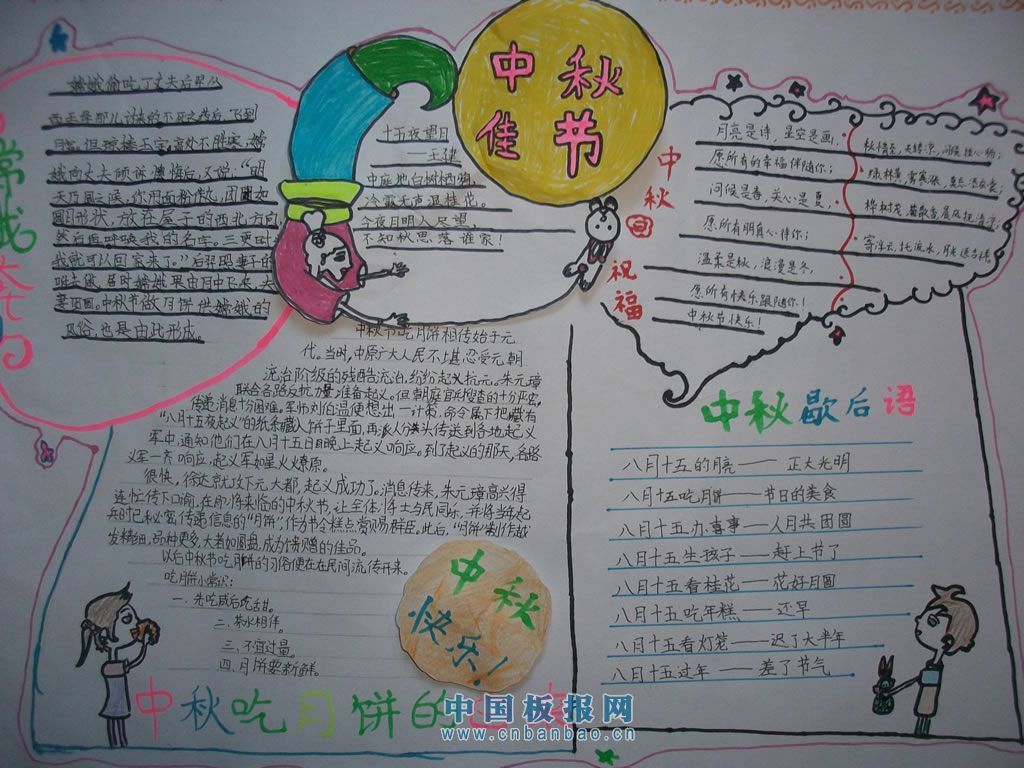 中秋
佳节
嫦娥偷吃了丈夫后羿从
西王母那儿讨来的不死之药后，飞到
月宫。但琼楼玉宇，高处不胜寒，嫦
娥向丈夫倾诉懊悔后，又说：“明
天乃月圆之候，你用面粉作丸，团团如
圆月形状，放在屋子的西北方向
然后再呼唤我的名字。三更时
我就可以回家来了。”后羿照妻子的
届时嫦娥果由月中飞来，夫
妻团圆。中秋节做月饼供嫦娥的
风俗，也是由此形成。
十五夜望月
——王建
中庭地白树栖鸦，
冷露无声湿桂花。
今夜月明人尽望，
不知秋思落谁家！
中秋
祝福
月亮是诗，星空是画，
愿所有的幸福伴随你；
问候是春，关心是夏，
愿所有朋友真心待你；
温柔是秋，浪漫是冬，
愿所有快乐跟随你！
中秋节快乐！
中秋节吃月饼相传始于元
代。当时，中原广大人民不堪忍受元朝
统治阶级的残酷统治，纷纷起义抗元。朱元璋
联合各路反抗力量准备起义。但朝庭官兵搜查的十分严密，
传递消息十分困难。军师刘伯温便想出一计策，命令属下把藏有
“八月十五夜起义”的纸条藏入饼子里面，再派人分头传送到各地起义
军中，通知他们在八月十五日晚上起义响应。到了起义的那天，各路
义军一齐响应，起义军如星火燎原。
很快，徐达就攻下元大都，起义成功了。消息传来，朱元璋高兴得
连忙传下口谕，在即将来临的中秋节，让全体将士与民同乐，并将当年起
兵时已秘密传递信息的“月饼”，作为节令糕点赏赐群臣。此后，“月饼”制作越
发精细，品种更多，大者如圆盘，成为馈赠的佳品。
以后中秋节吃月饼的习俗便在民间流传开来。
吃月饼小常识：
一、先吃咸后吃甜。
二、茶水相伴。
三、不宜过量。
四、月饼要新鲜。
中秋
快乐！
中秋吃月饼的
中秋歇后语
八月十五的月亮——正大光明
八月十五吃月饼——节日的美食
八月十五办喜事——人月共团圆
八月十五生孩子——赶上节了
八月十五看桂花——花好月圆
八月十五吃年糕——还早
八月十五看灯笼——迟了大半年
八月十五过年——差了节气
中国板报网
www.cnbanbao.cn